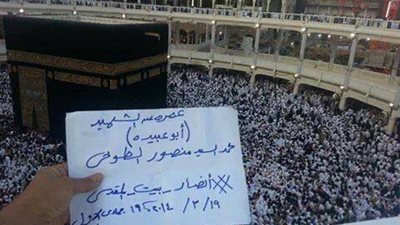 عمره عن الشهيد
(أبو عبيدة)
محمد السيد منصور الطوخى
** أنصار بيت المقدس
١٩ / ٣ / ٢٠١٤